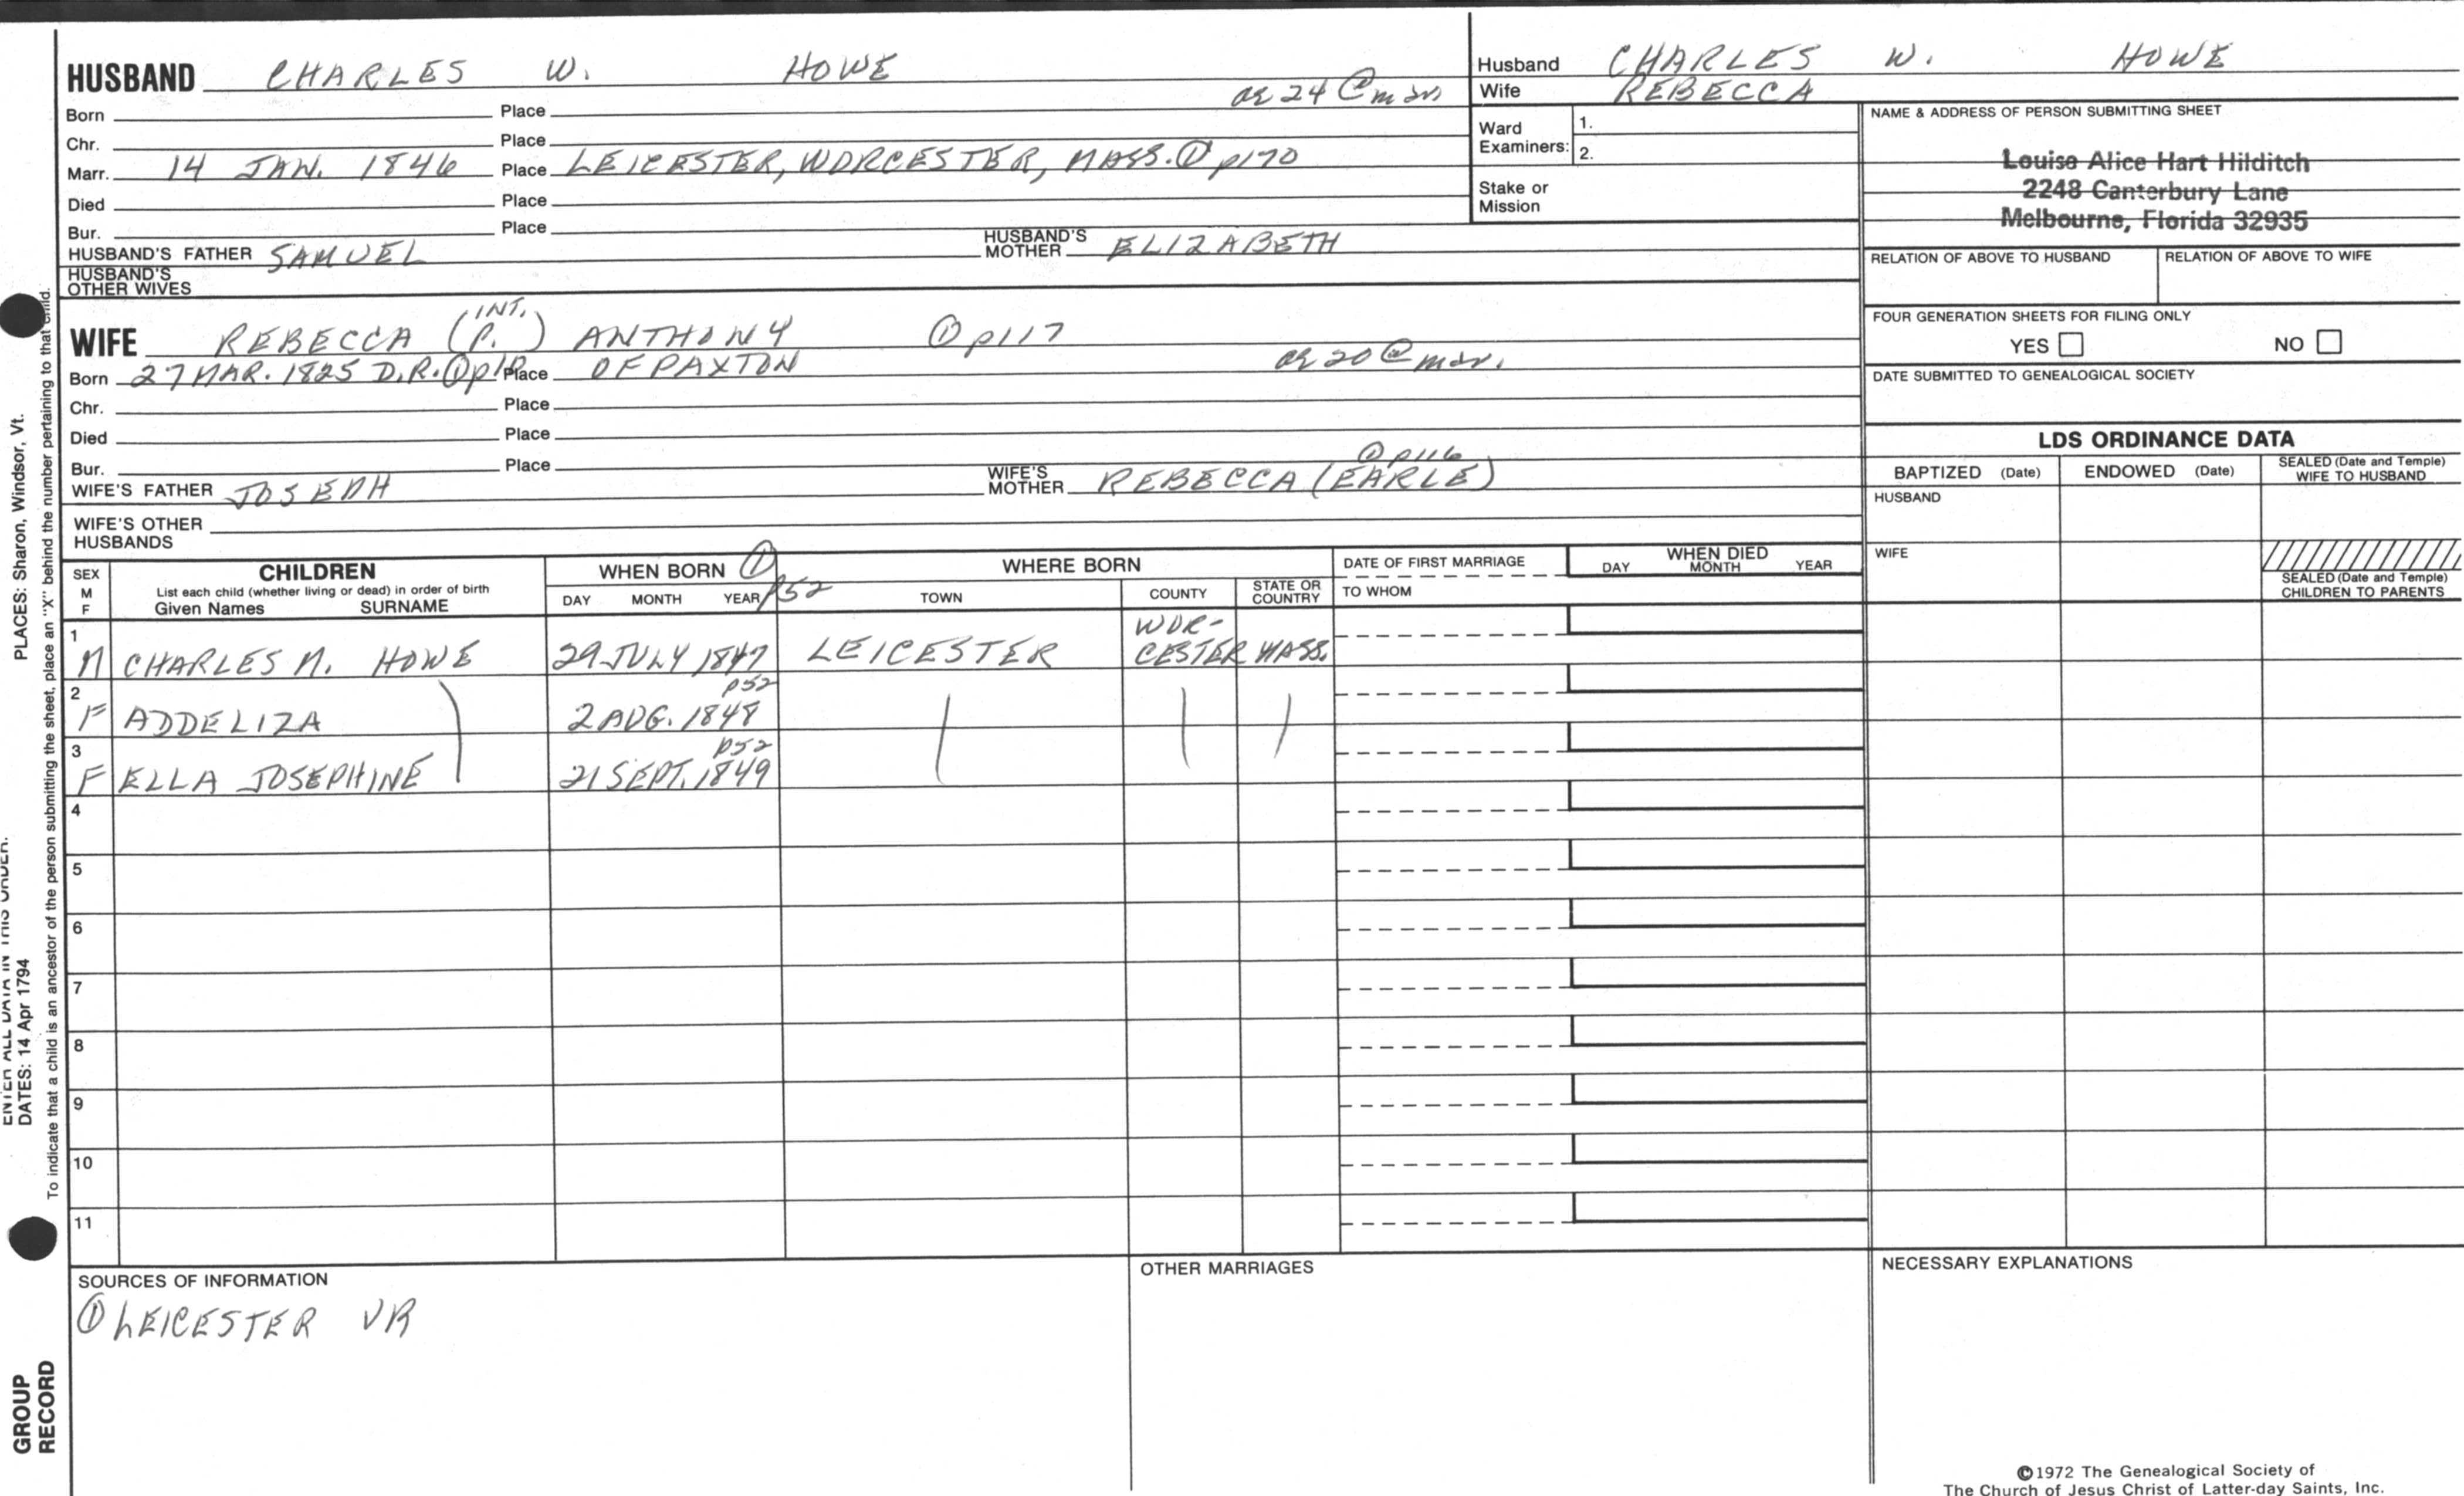 HUSBAND CHARLES W. HOWE
ae 24 @ mar
Born Place
Chr. Place
Marr. 14 JAN. 1846 Place LEICESTER, WORCESTER, MASS. ① p170
Died Place
Bur. Place
HUSBAND'S FATHER SAMUEL HUSBAND'S MOTHER ELIZABETH
HUSBAND'S OTHER WIVES
WIFE REBECCA (P.) INT. ANTHONY ① p117
Born 27 MAR. 1825 D.R. ① p12 Place OF PAXTON ae 20 @ mar.
Chr. Place
Died Place
Bur. Place
① p116
WIFE'S FATHER JOSEPH WIFE'S MOTHER REBECCA (EARLE)
WIFE'S OTHER HUSBANDS
Husband CHARLES W. HOWE
Wife REBECCA
Ward Examiners: 1.
2.
Stake or Mission
NAME & ADDRESS OF PERSON SUBMITTING SHEET
Louise Alice Hart Hilditch
2248 Canterbury Lane
Melbourne, Florida 32935
RELATION OF ABOVE TO HUSBAND RELATION OF ABOVE TO WIFE
FOUR GENERATION SHEETS FOR FILING ONLY
YES NO
DATE SUBMITTED TO GENEALOGICAL SOCIETY
LDS ORDINANCE DATA
BAPTIZED (Date) ENDOWED (Date) SEALED (Date and Temple) WIFE TO HUSBAND
HUSBAND
WIFE
SEALED (Date and Temple) CHILDREN TO PARENTS
SEX M F CHILDREN WHEN BORN ① p52 WHERE BORN DATE OF FIRST MARRIAGE WHEN DIED
List each child (whether living or dead) in order of birth
Given Names SURNAME DAY MONTH YEAR TOWN COUNTY STATE OR COUNTRY TO WHOM DAY MONTH YEAR
1 M CHARLES M. HOWE 29 JULY 1847 LEICESTER WOR-CESTER MASS.
2 F ADDELIZA 2 AUG. 1848 p52
3 F ELLA JOSEPHINE 21 SEPT. 1849 p52
4
5
6
7
8
9
10
11
SOURCES OF INFORMATION
① LEICESTER VR
OTHER MARRIAGES
NECESSARY EXPLANATIONS
©1972 The Genealogical Society of
The Church of Jesus Christ of Latter-day Saints, Inc.
PLACES: Sharon, Windsor, Vt.
ENTER ALL DATA IN THIS ORDER.
DATES: 14 Apr 1794
To indicate that a child is an ancestor of the person submitting the sheet, place an "X" behind the number pertaining to that child.
GROUP
RECORD